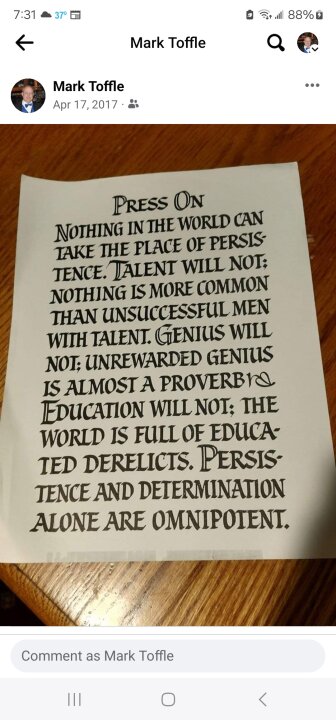 7:31 37°
88%
Mark Toffle
Mark Toffle
Apr 17, 2017 ·
PRESS ON
NOTHING IN THE WORLD CAN
TAKE THE PLACE OF PERSIS-
TENCE. TALENT WILL NOT;
NOTHING IS MORE COMMON
THAN UNSUCCESSFUL MEN
WITH TALENT. GENIUS WILL
NOT; UNREWARDED GENIUS
IS ALMOST A PROVERB
EDUCATION WILL NOT; THE
WORLD IS FULL OF EDUCA-
TED DERELICTS. PERSIS-
TENCE AND DETERMINATION
ALONE ARE OMNIPOTENT.
Comment as Mark Toffle